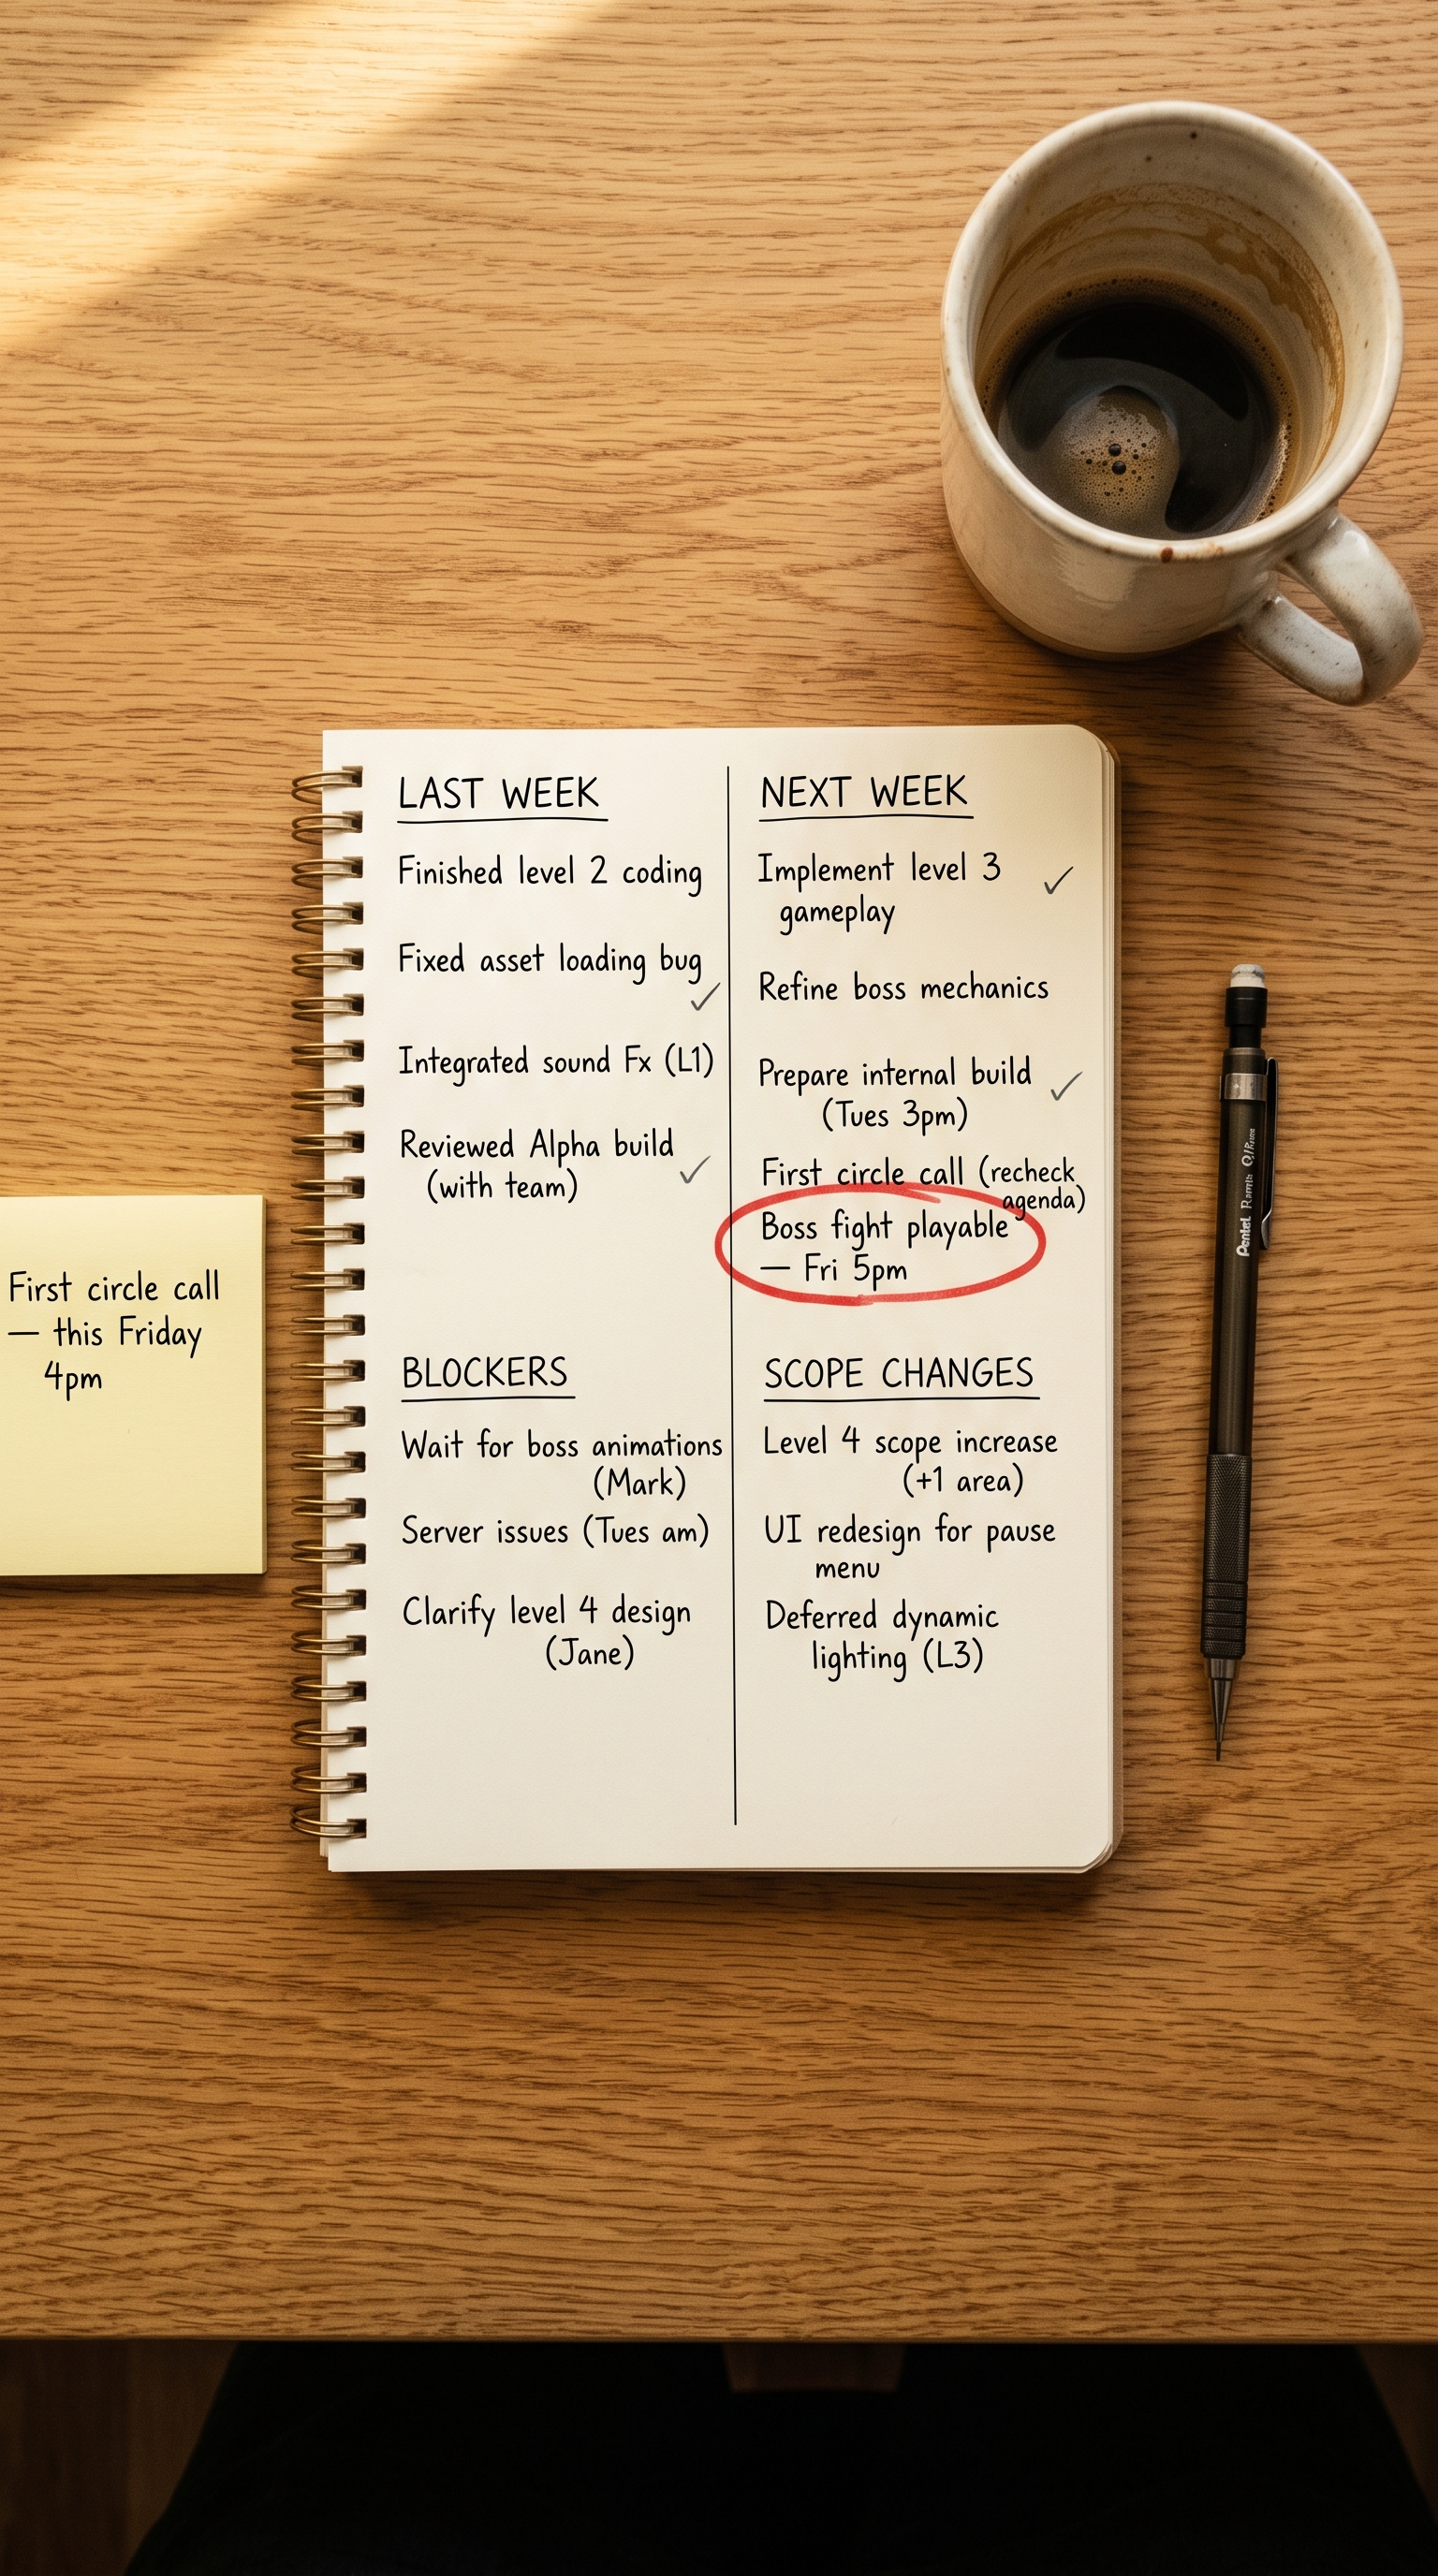 LAST WEEK
Finished level 2 coding
Fixed asset loading bug
✓
Integrated sound Fx (L1)
Reviewed Alpha build
(with team) ✓
NEXT WEEK
Implement level 3 ✓
gameplay
Refine boss mechanics
Prepare internal build ✓
(Tues 3pm)
First circle call (recheck
agenda)
Boss fight playable
— Fri 5pm
BLOCKERS
Wait for boss animations
(Mark)
Server issues (Tues am)
Clarify level 4 design
(Jane)
SCOPE CHANGES
Level 4 scope increase
(+1 area)
UI redesign for pause
menu
Deferred dynamic
lighting (L3)
First circle call
— this Friday
4pm
Pentel